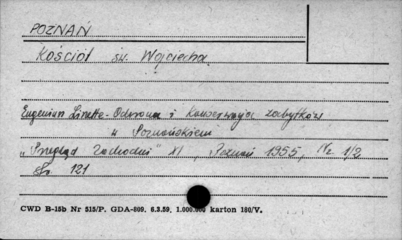 POZNAŃ
Kościół św. Wojciecha
Eugeniusz Linette - Odnowa i Konserwacja zabytków
w Poznańskiem
"Przegląd Zachodni" XI, Poznań 1955, Nr 1/2
Str. 121
CWD B-15b Nr 515/P. GDA-809. 6.3.59. 1.000.000 karton 180/V.